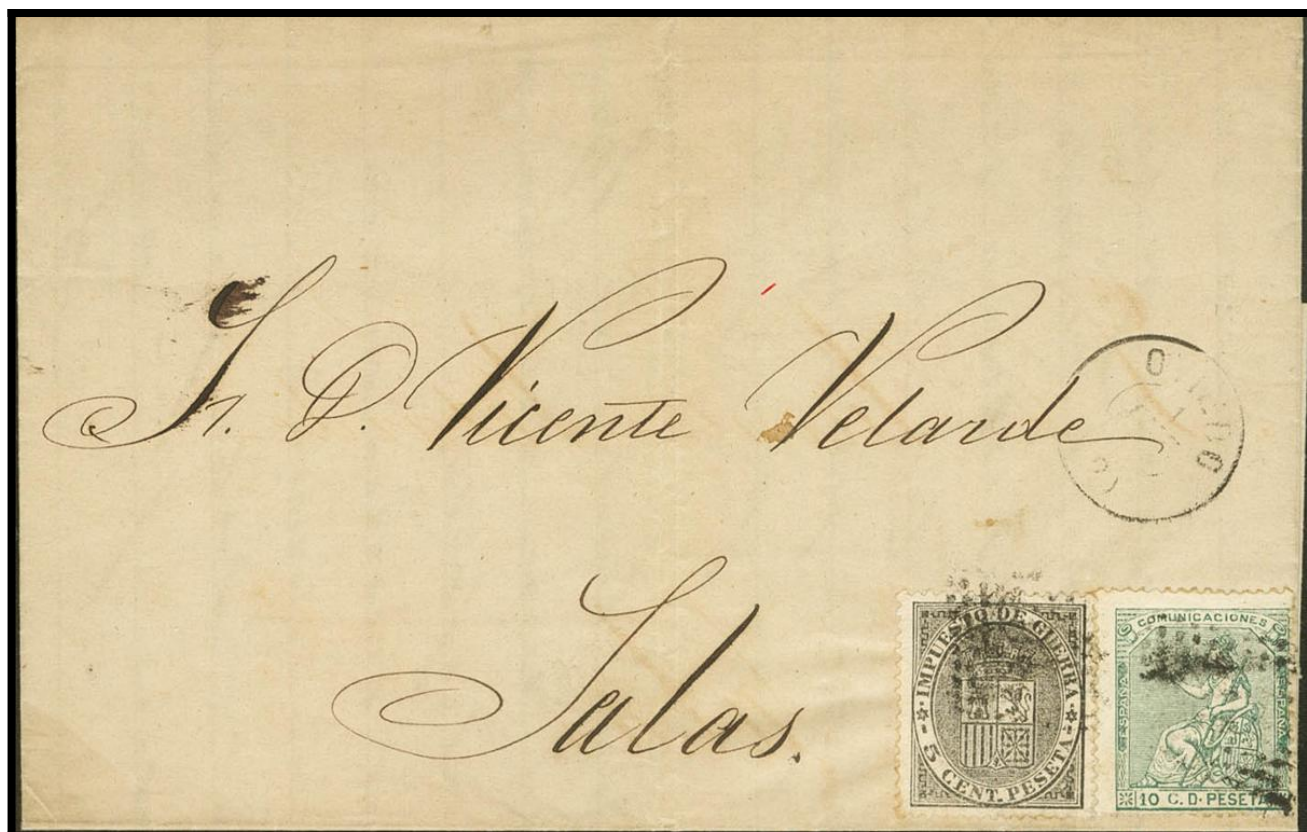 Sr. D. Vicente Velarde
Salas.
IMPUESTO DE GUERRA
5 CENT. PESETA
COMUNICACIONES
ESPAÑA
ESPAÑA
10 C. D. PESETA